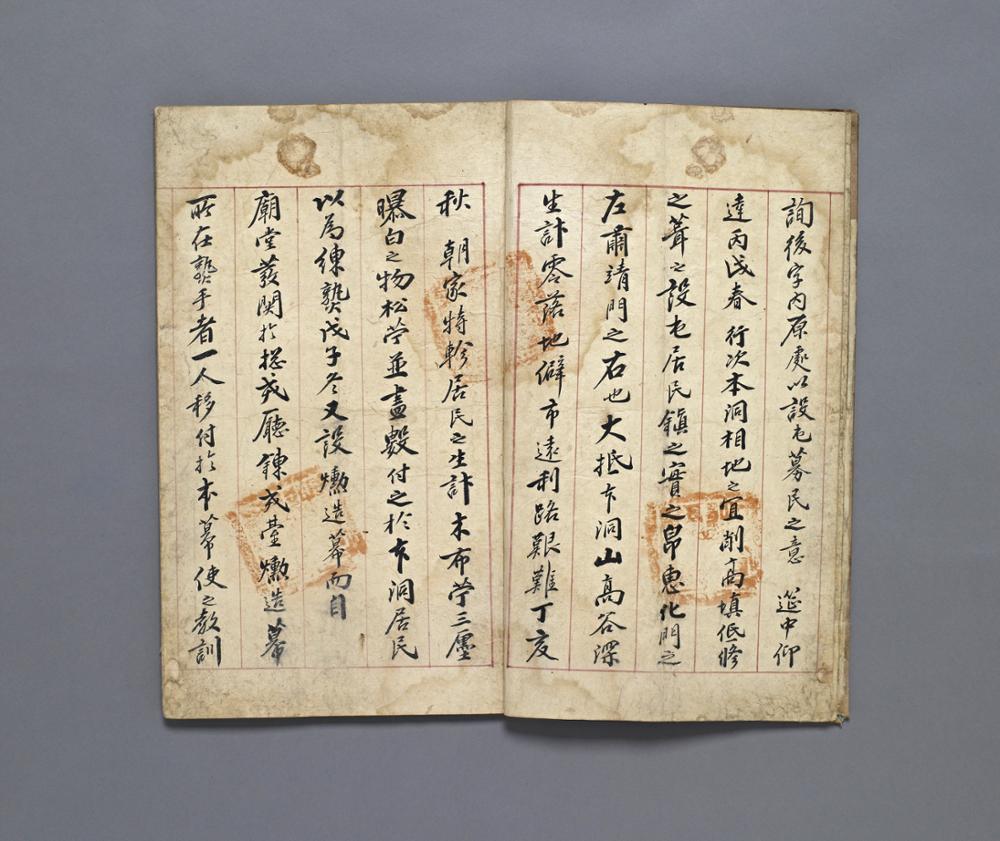 詢後字內原處以設屯募民之意 筵中仰
達丙戌春 行次本洞相地之宜削高塡低修
之葺之設屯居民鎭之實之帛惠化門之
左肅靖門之右也大抵卞洞山高谷深
生計零落地僻市遠利路艱難丁亥
秋 朝家特軫居民之生計木布苧三疊
曝白之物松苧並盡數付之於卞洞居民
以爲練熟戊子冬又設燻造幕而自
廟堂發関於摠戎廳鍊戎臺燻造幕
所在熟手者一人移付於本幕使之敎訓